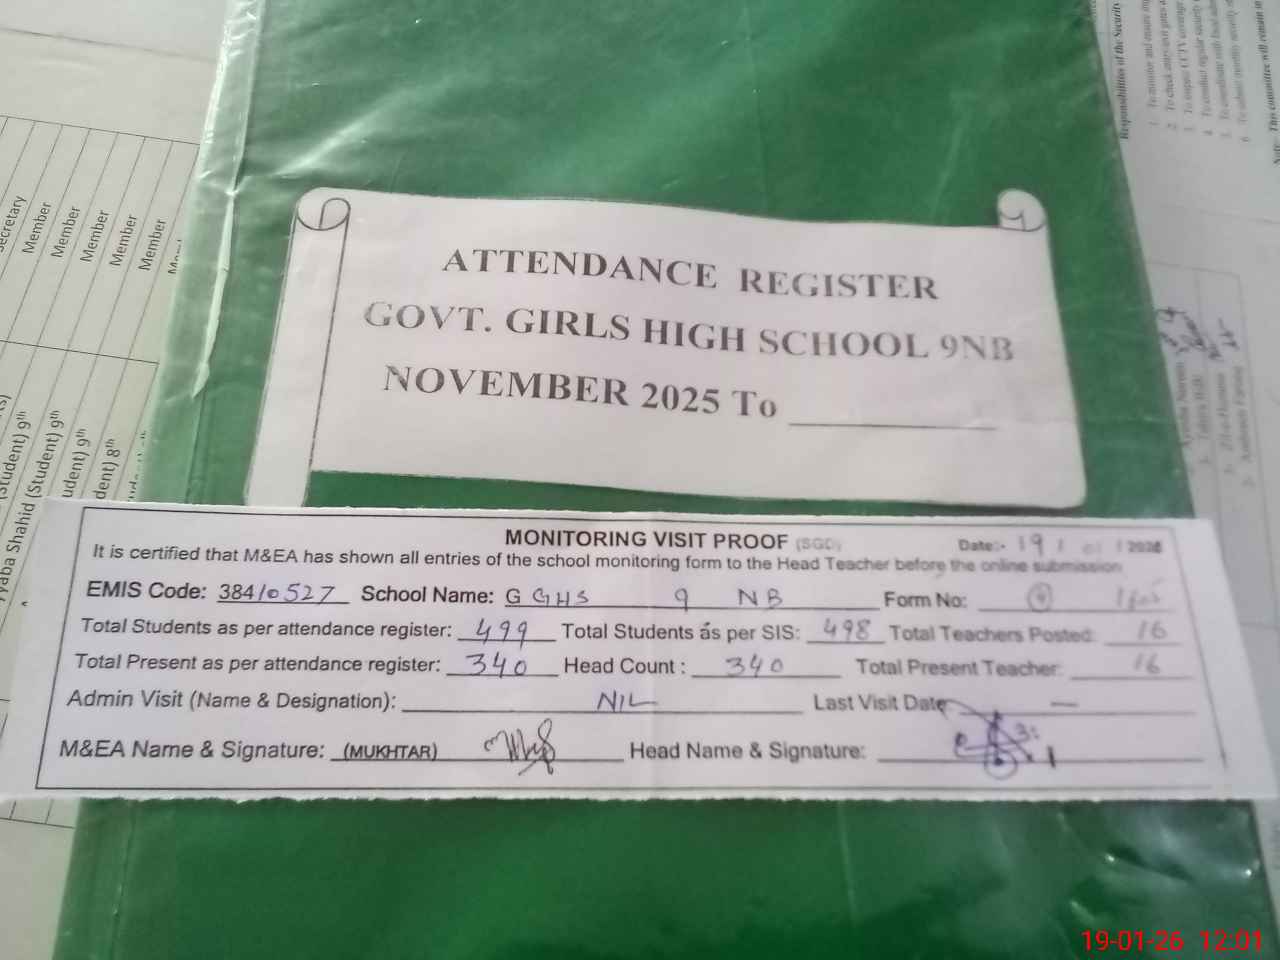 Responsibilities of the Security
1. To monitor and ensure
2. To check
3. To inspect CCTV coverage
4. To conduct regular security
5. To coordinate with local
6. To submit monthly security
Note: This committee will remain in
Secretary
Member
Member
Member
Member
Member
(Student) 9th
Shahid (Student) 9th
udent) 9th
dent) 8th
ATTENDANCE REGISTER
GOVT. GIRLS HIGH SCHOOL 9NB
NOVEMBER 2025 To
MONITORING VISIT PROOF (SGD) Date:- 19 / 01 / 2026
It is certified that M&EA has shown all entries of the school monitoring form to the Head Teacher before the online submission
EMIS Code: 38410527 School Name: GGHS 9 NB Form No:
Total Students as per attendance register: 499 Total Students as per SIS: 498 Total Teachers Posted: 16
Total Present as per attendance register: 340 Head Count : 340 Total Present Teacher: 16
Admin Visit (Name & Designation): NIL Last Visit Date —
M&EA Name & Signature: (MUKHTAR) Head Name & Signature:
19-01-26 12:01